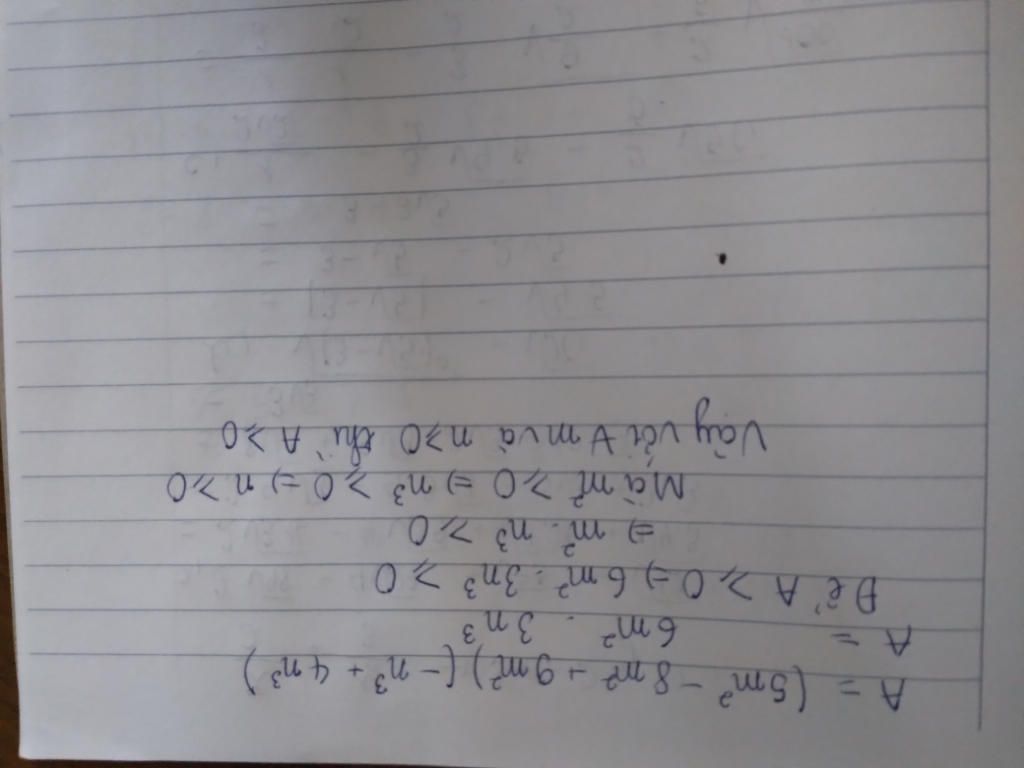 A = (5m² - 8m² + 9m²)(-n³ + 4n³)
A = 6m² . 3n³
Để A ⩾ 0 ⇒ 6m² . 3n³ ⩾ 0
⇒ m² . n³ ⩾ 0
Mà m² ⩾ 0 ⇒ n³ ⩾ 0 ⇒ n ⩾ 0
Vậy với ∀ m và n ⩾ 0 thì A ⩾ 0